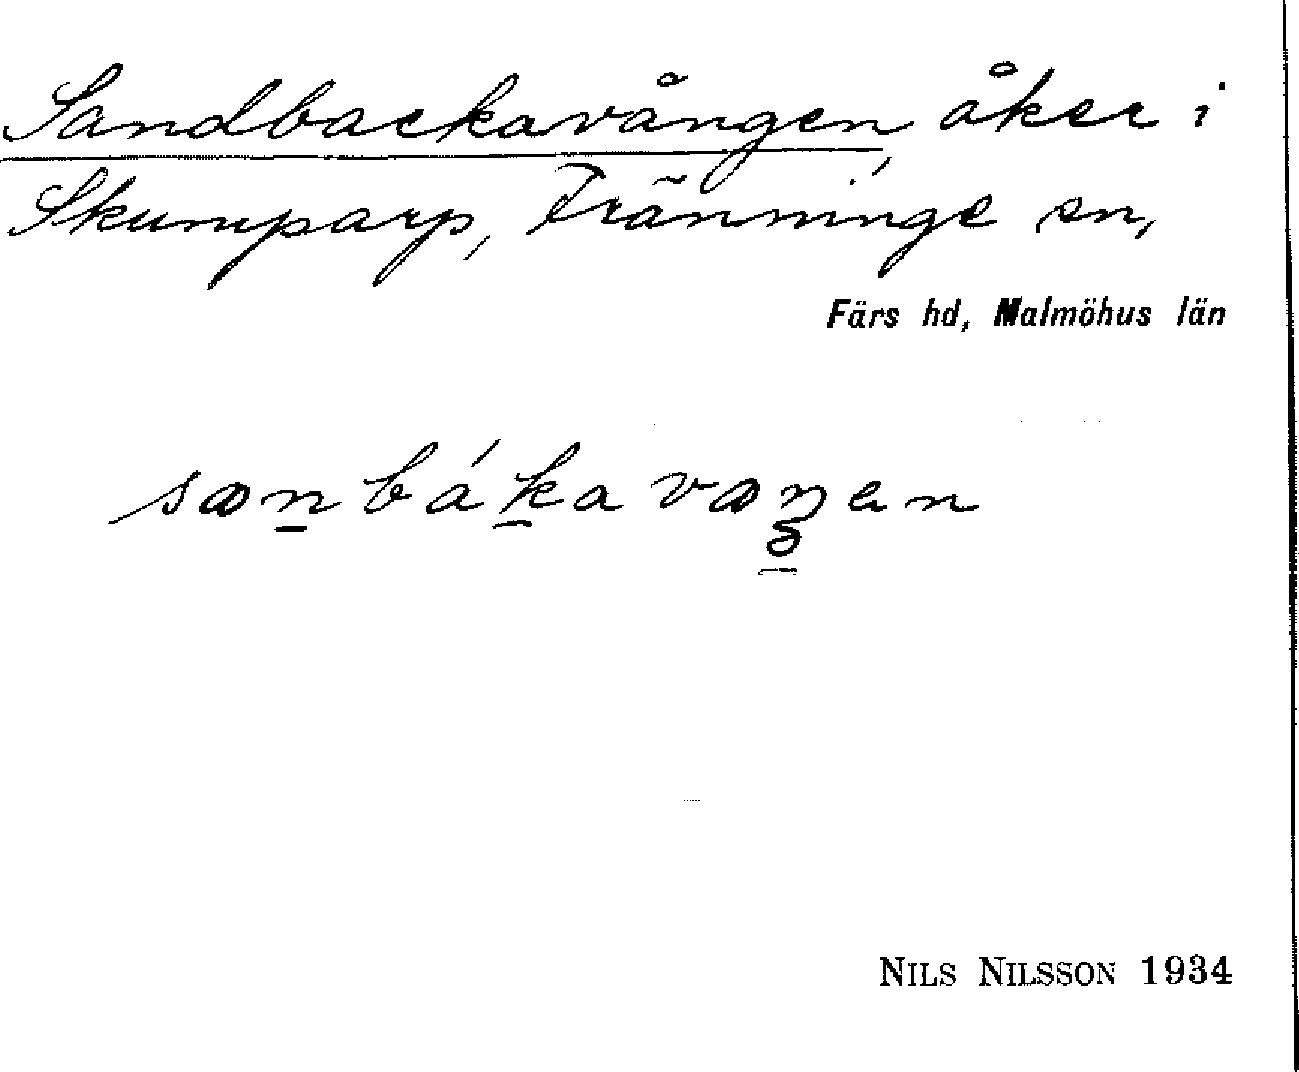 Sandbackavången, åker i
Skumparp, Tränninge sn,
Färs hd, Malmöhus län
sanbákavaŋen
NILS NILSSON 1934